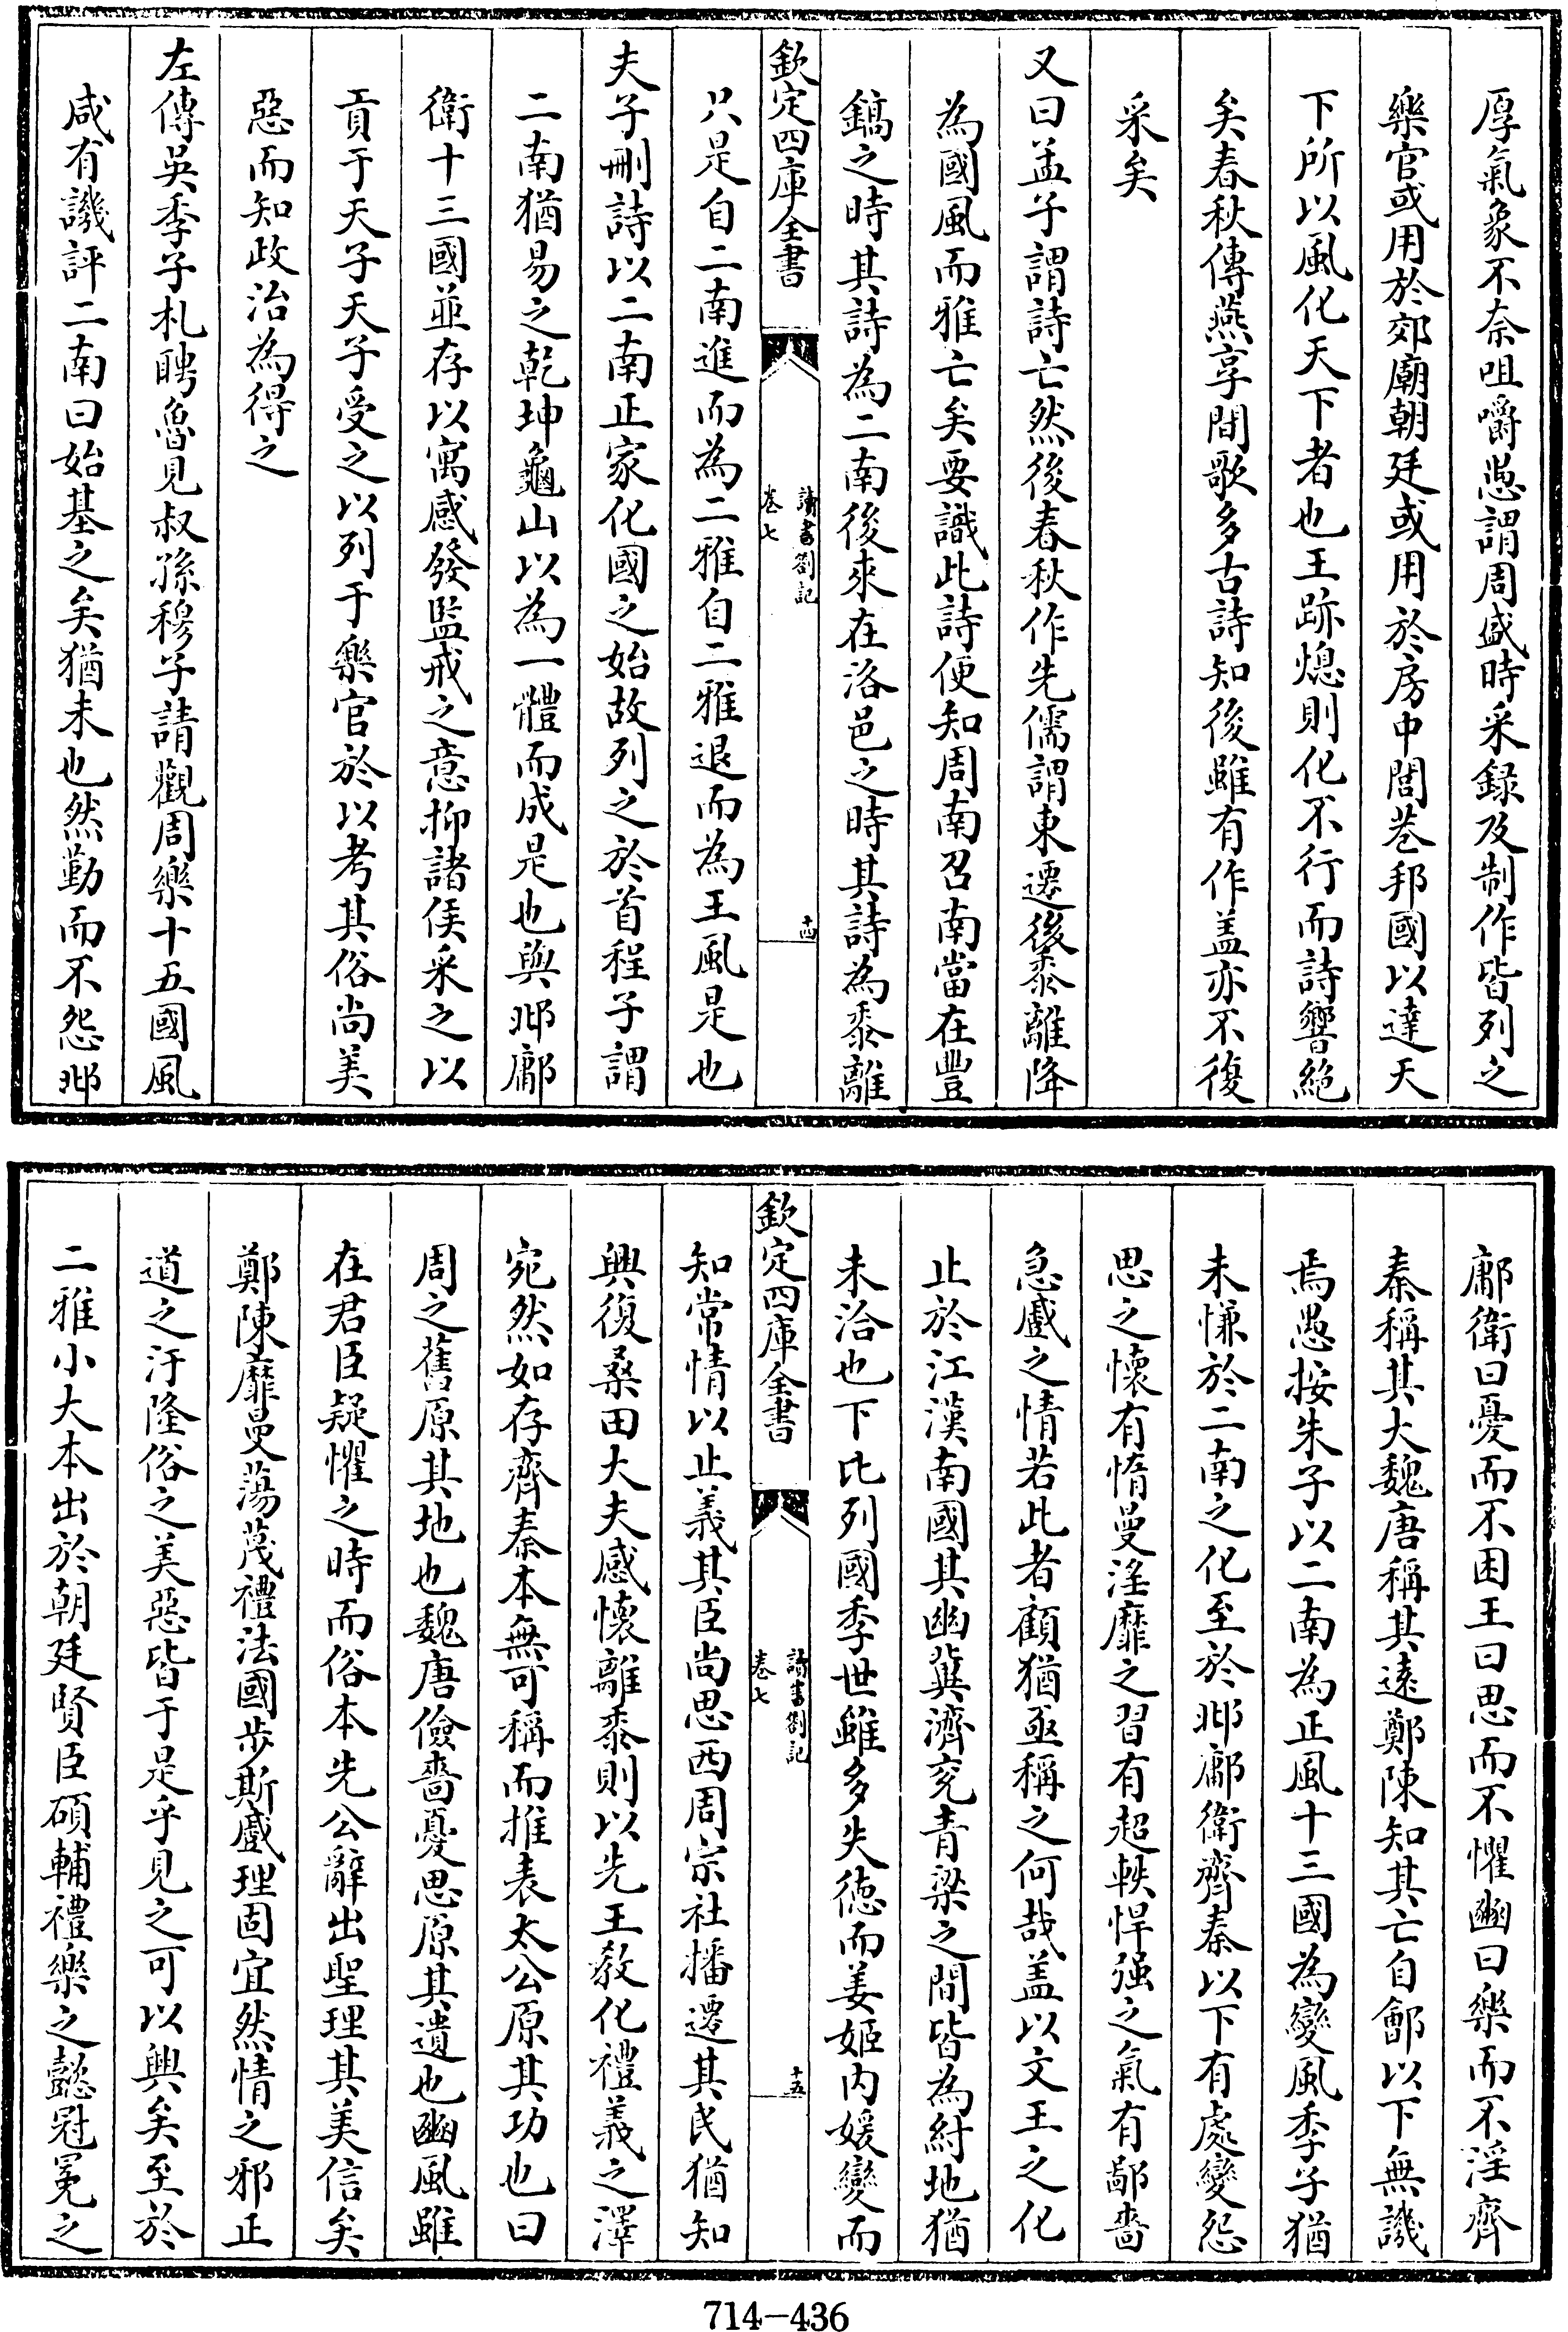 厚氣象不奈咀嚼愚謂周盛時采録及制作皆列之
樂官或用於郊廟朝廷或用於房中閭巷邦國以達天
下所以風化天下者也王跡熄則化不行而詩響絶
矣春秋傳燕享間歌多古詩知後雖有作盖亦不復
采矣
又曰孟子謂詩亡然後春秋作先儒謂東遷後黍離降
為國風而雅亡矣要識此詩便知周南召南當在豐
鎬之時其詩為二南後來在洛邑之時其詩為黍離
欽定四庫全書
讀書劄記
卷七
十四
只是自二南進而為二雅自二雅退而為王風是也
夫子刪詩以二南正家化國之始故列之於首程子謂
二南猶易之乾坤龜山以為一體而成是也與邶鄘
衛十三國並存以寓感發監戒之意抑諸侯采之以
貢于天子天子受之以列于樂官於以考其俗尚美
惡而知政治為得之
左傳吳季子札聘魯見叔孫穆子請觀周樂十五國風
咸有譏評二南曰始基之矣猶未也然勤而不怨邶
鄘衛曰憂而不困王曰思而不懼豳曰樂而不淫齊
秦稱其大魏唐稱其遠鄭陳知其亡自鄶以下無譏
焉愚按朱子以二南為正風十三國為變風季子猶
未慊於二南之化至於邶鄘衛齊秦以下有處變怨
思之懷有惰曼淫靡之習有超軼悍强之氣有鄙嗇
急蹙之情若此者顧猶亟稱之何哉盖以文王之化
止於江漢南國其幽冀濟兖青梁之間皆為紂地猶
未洽也下比列國季世雖多失徳而姜姬内媛變而
欽定四庫全書
讀書劄記
卷七
十五
知常情以止義其臣尚思西周宗社播遷其民猶知
興復桑田大夫感懷離黍則以先王教化禮義之澤
宛然如存齊秦本無可稱而推表太公原其功也曰
周之舊原其地也魏唐儉嗇憂思原其遺也豳風雖
在君臣疑懼之時而俗本先公辭出聖理其美信矣
鄭陳靡曼蕩蔑禮法國步斯蹙理固宜然情之邪正
道之汙隆俗之美惡皆于是乎見之可以興矣至於
二雅小大本出於朝廷賢臣碩輔禮樂之懿冠冕之
714-436